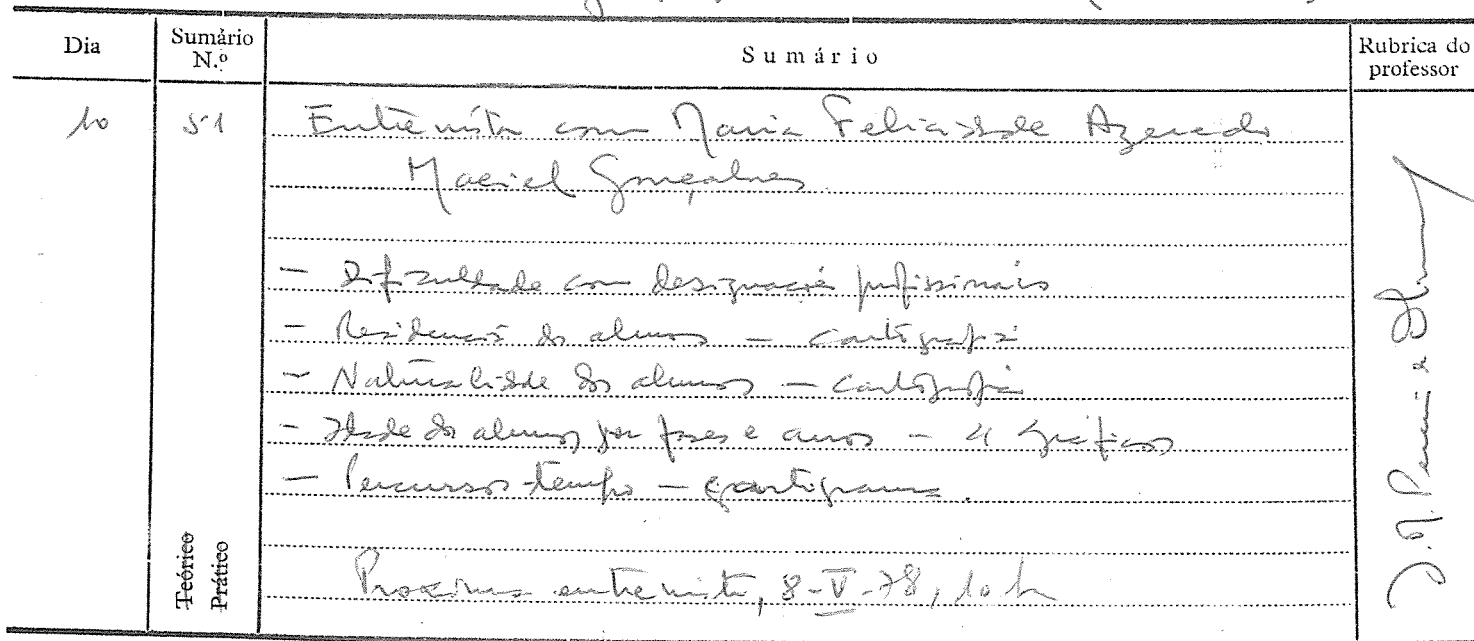 Dia
Sumário N.º
Sumário
Rubrica do professor
10
51
Entrevista com Maria Felicidade Azevedo
Maciel Gonçalves
- Dificuldade com designações profissionais
- Residência dos alunos — cartografia
- Naturalidade dos alunos — cartografia
- Idade dos alunos por fases e anos — 4 gráficos
- Percursos-tempo — cartograma.
Teórico
Prático
Proxima entrevista, 8-V-78, 10 h
J. M. Pereira de